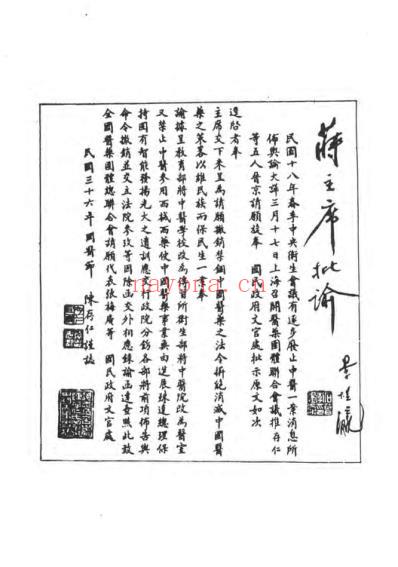 蔣主席批諭
民國十八年春季中央衛生會議有逐步廢止中醫一案消息所
佈輿論大譁三月十七日上海召開醫藥團體聯合會議推存仁
等五人晉京請願旋奉 國民政府文官處批示原文如次
逕啓者奉
主席交下來呈為請願撤銷禁錮中國醫藥之法令摒絕消滅中國醫
藥之策略以維民族而保民生一案奉
諭據呈教育部將中醫學校改為傳習所衛生部將中醫院改為醫室
又禁止中醫參用西械西藥使中國醫藥事業無由進展殊違總理保
持固有智能發揚光大之遺訓應交行政院分飭各部將前項佈告與
命令撤銷並交立法院參攷等因除函交外相應錄諭函達查照此致
全國醫藥團體總聯合會請願代表張梅庵等 國民政府文官處
民國三十六年國醫節 陳存仁謹誌
nayona.cn